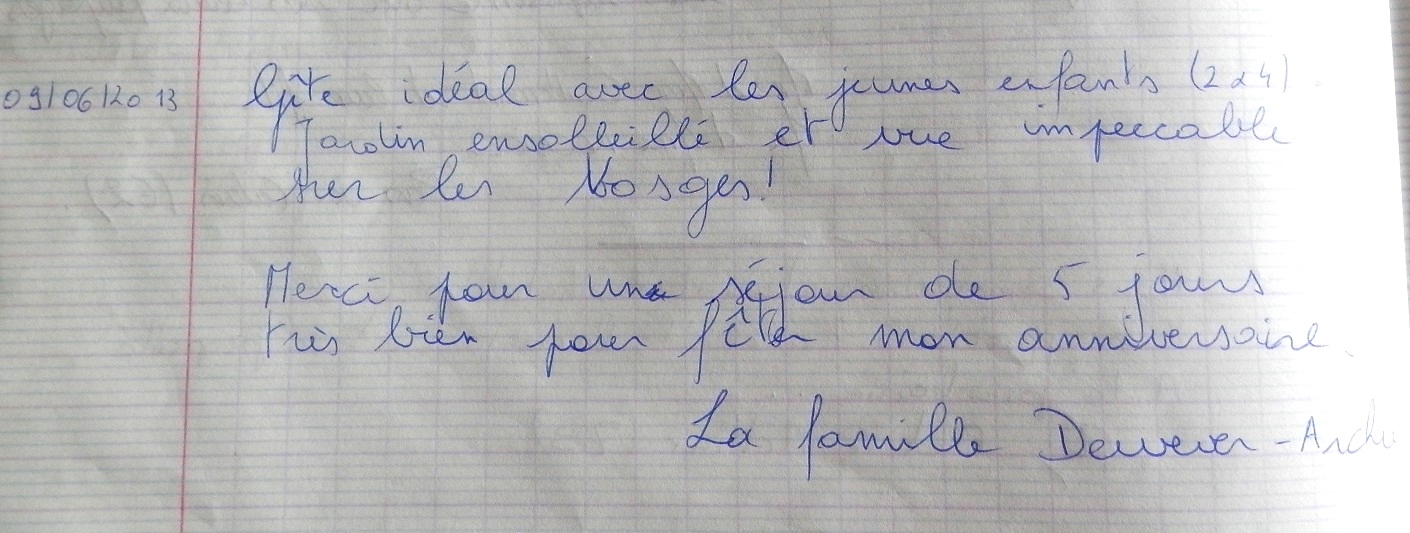 09/06/2013 Gîte idéal avec les jeunes enfants (2 à 4).
Jardin ensolleillé et vue impeccable
sur les Vosges!
Merci pour une séjour de 5 jours
très bien pour fêter mon anniversaire.
La famille Dewever -